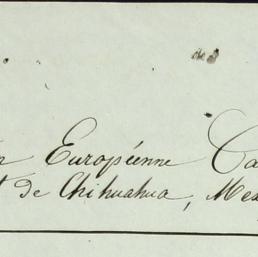 n Européenne Ca
t de Chihuahua, Mex